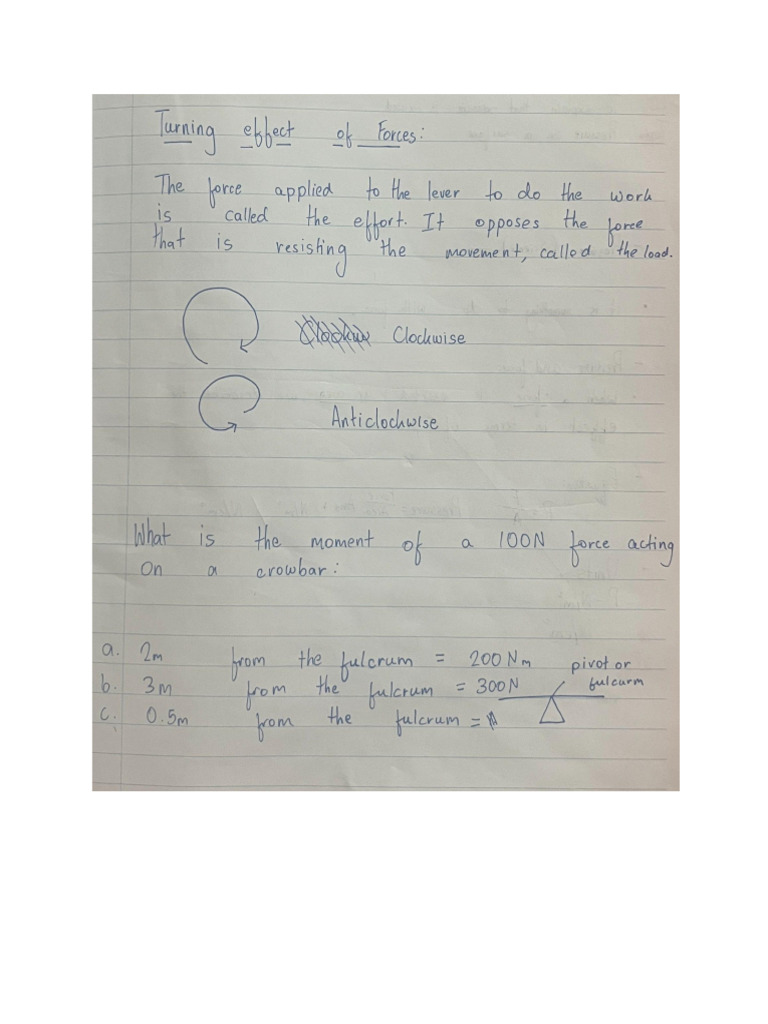 Turning effect of Forces:
The force applied to the lever to do the work
is called the effort. It opposes the force
that is resisting the movement, called the load.
Clockwise
Anticlockwise
What is the moment of a 100N force acting
on a crowbar:
a. 2m from the fulcrum = 200 Nm
b. 3m from the fulcrum = 300N
c. 0.5m from the fulcrum =
pivot or
fulcurm